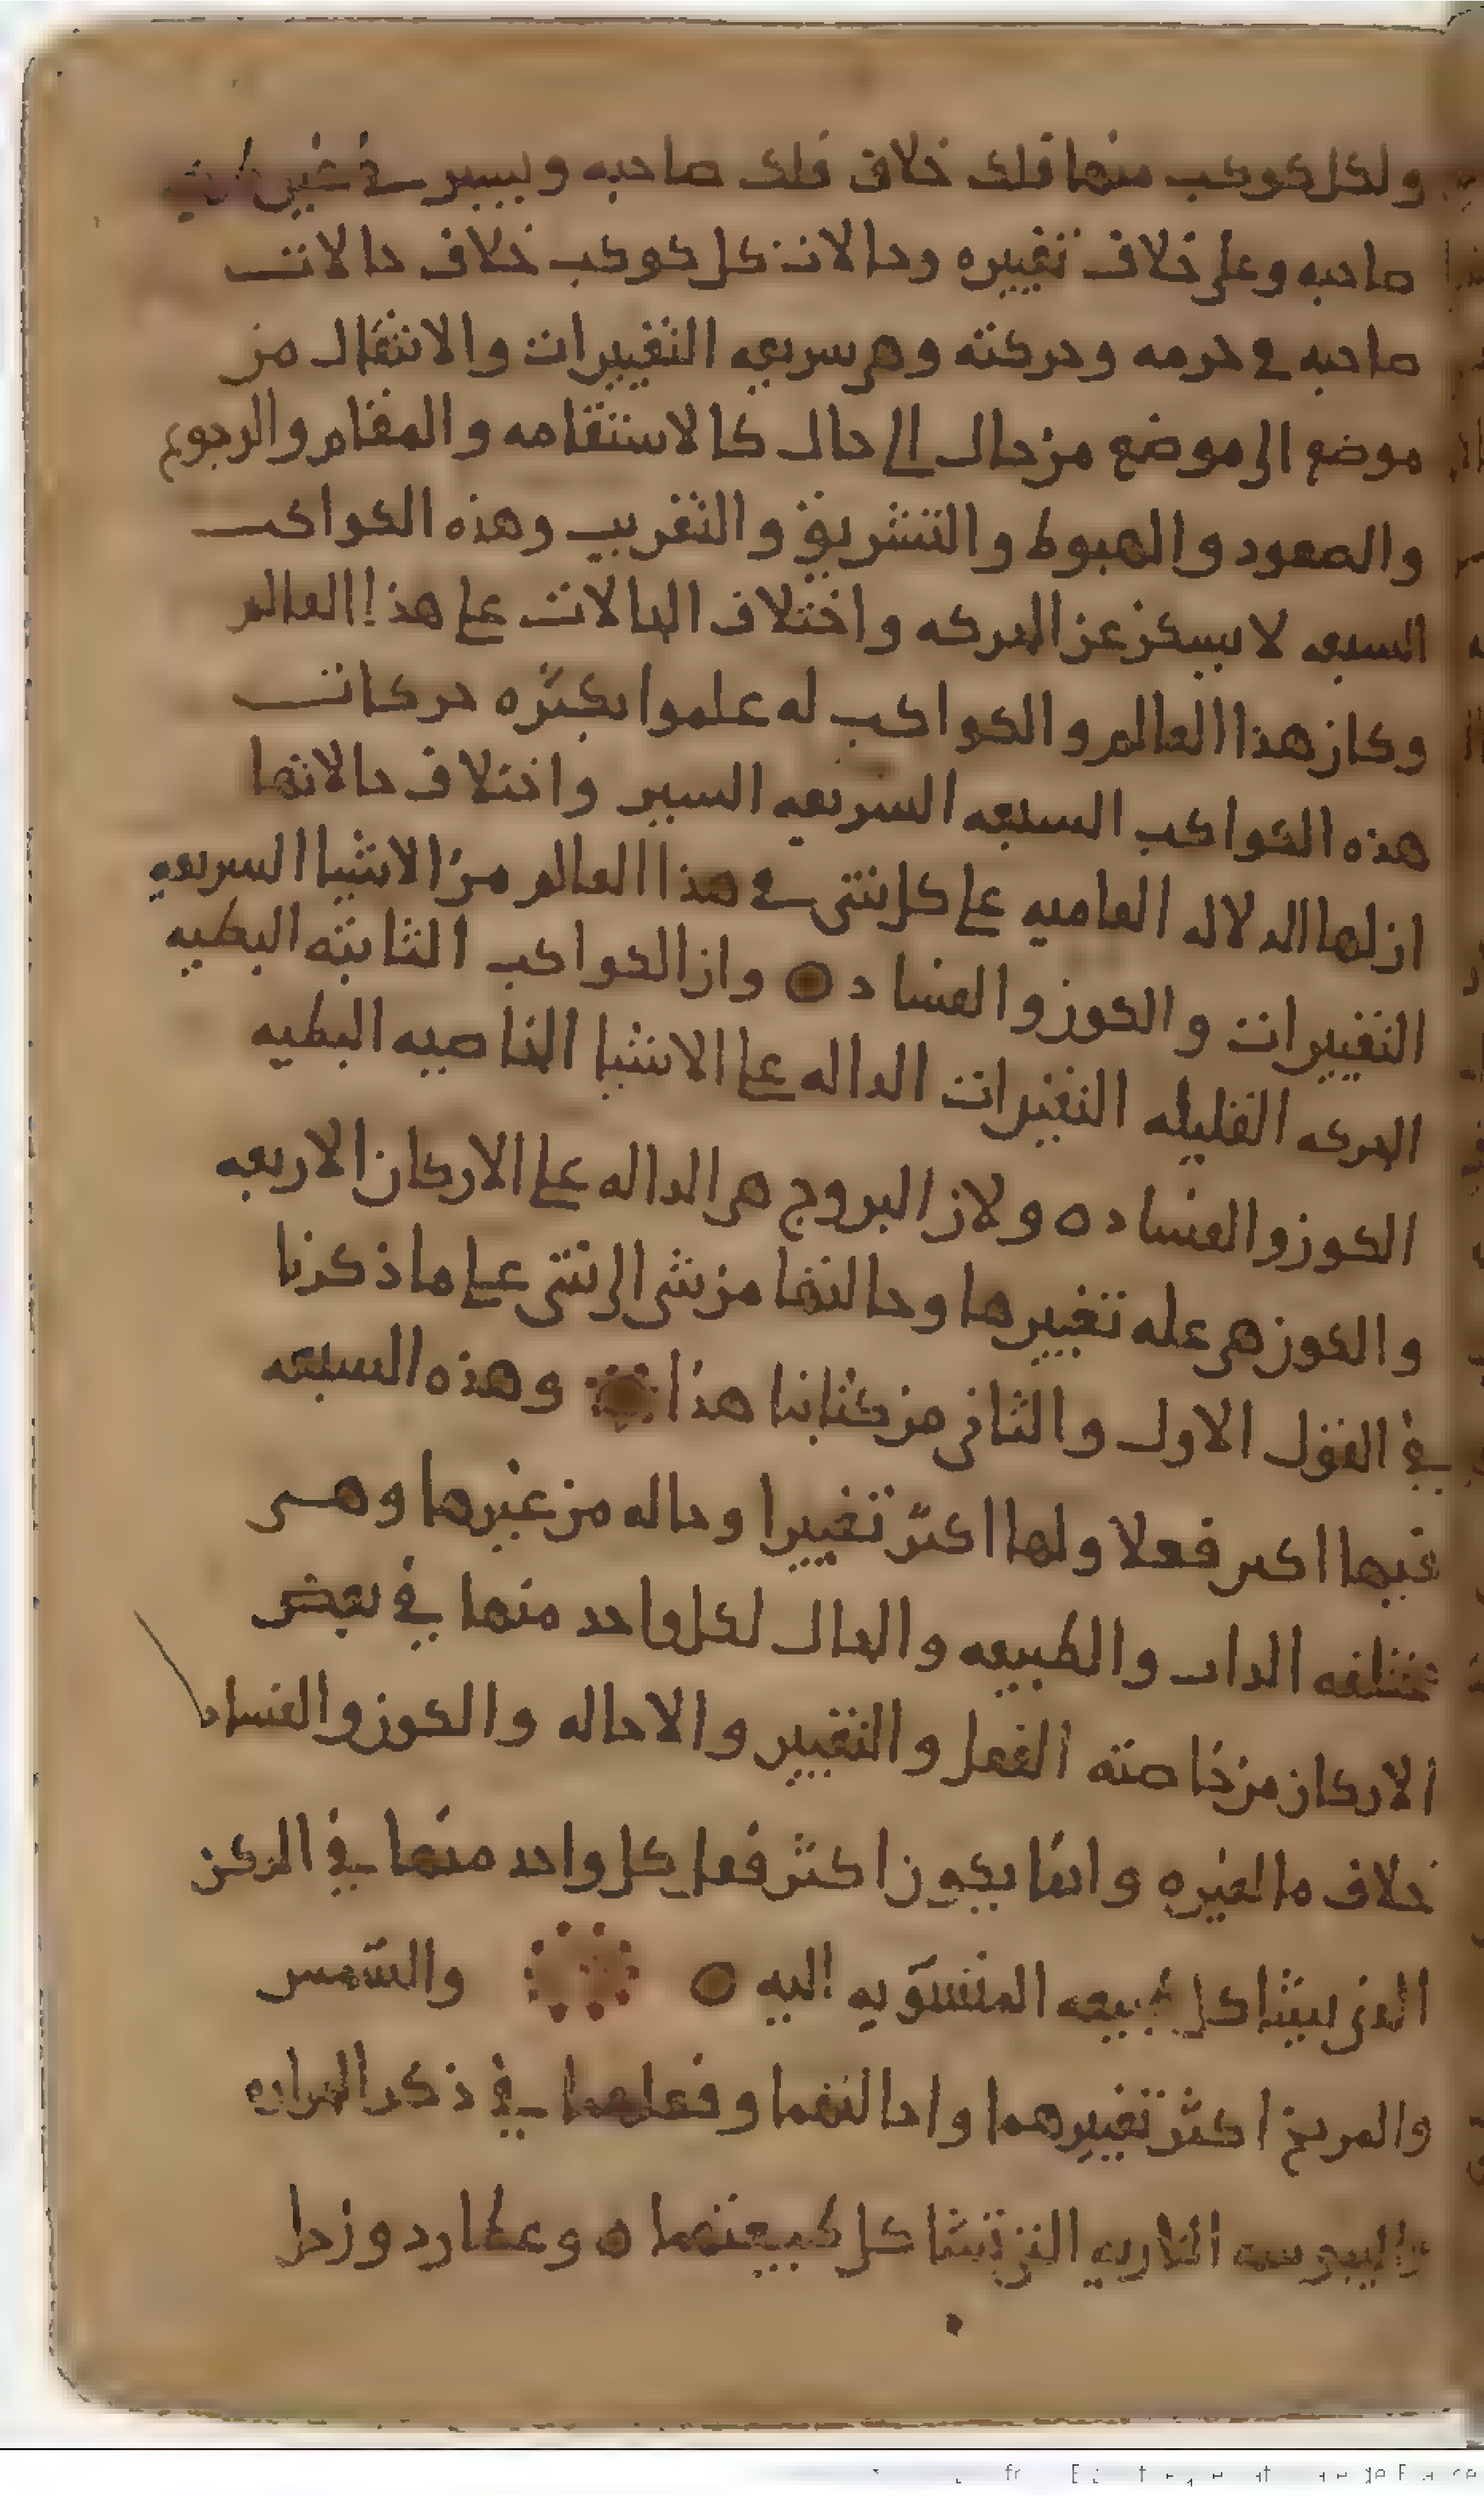 ولكل كوكب منها فلك خلاف فلك صاحبه ويسير في غير
صاحبه وعلى خلاف تغييره وحالات كل كوكب خلاف حالات
صاحبه في جرمه وحركته وهي سريعه التغييرات والانتقال من
موضع الى موضع من حال الى حال كالاستقامه والمقام والرجوع
والصعود والهبوط والتشريق والتغريب وهذه الكواكب
السبعه لا يسكن عن الحركه واختلاف الحالات على هذا العالم
وكان هذا العالم والكواكب له علموا بكثره حركات
هذه الكواكب السبعه السريعه السير واختلاف حالاتها
ان لها الدلاله العاميه على كل شي في هذا العالم من الاشيا السريعه
التغييرات والكون والفساد ه وان الكواكب الثابته البطيه
الحركه القليله التغيرات الداله على الاشيا الخاصيه البطيه
الكون والفساد ه ولان البروج هي الداله على الاركان الاربعه
والكون هي عله تغييرها وحالتها من شي الى شي على ما ذكرنا
في القول الاول والثاني من كتابنا هذا وهذه السبعه
فيها اكثر فعلا ولها اكثر تغييرا وحاله من غيرها وهي
مختلفه الذات والطبيعه والحال لكل واحد منها في بعض
الاركان من خاصته الفعل والتغيير والاحاله والكون والفساد
خلاف ما لغيره وانما يكون اكثر فعل كل واحد منها في الركن
الذي يشاكل طبيعه المنسوبه اليه ه والشمس
والمريخ اكثر تغييرهما واحالتهما وفعلهما في ذكر الحراره
واليبوسه الناريه التي تشاكل طبيعتهما ه وعطارد وزحل